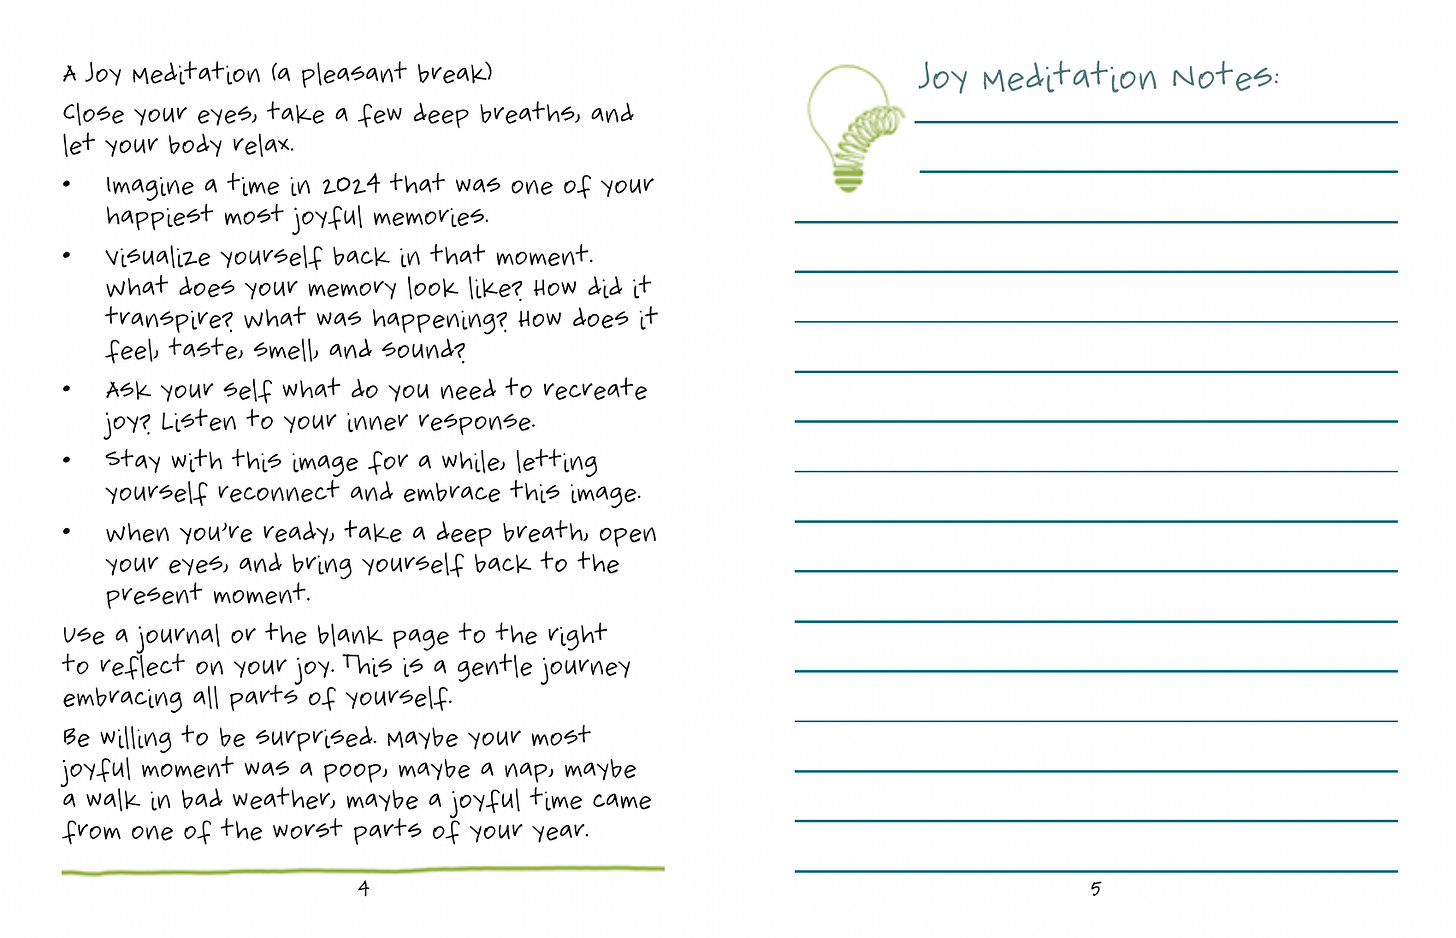 A Joy Meditation (a pleasant break)
Close your eyes, take a few deep breaths, and
let your body relax.
• Imagine a time in 2024 that was one of your
happiest most joyful memories.
• Visualize yourself back in that moment.
What does your memory look like? How did it
transpire? What was happening? How does it
feel, taste, smell, and sound?
• Ask your self what do you need to recreate
joy? Listen to your inner response.
• Stay with this image for a while, letting
yourself reconnect and embrace this image.
• When you're ready, take a deep breath, open
your eyes, and bring yourself back to the
present moment.
Use a journal or the blank page to the right
to reflect on your joy. This is a gentle journey
embracing all parts of yourself.
Be willing to be surprised. Maybe your most
joyful moment was a poop, maybe a nap, maybe
a walk in bad weather, maybe a joyful time came
from one of the worst parts of your year.
4
Joy Meditation Notes:
5